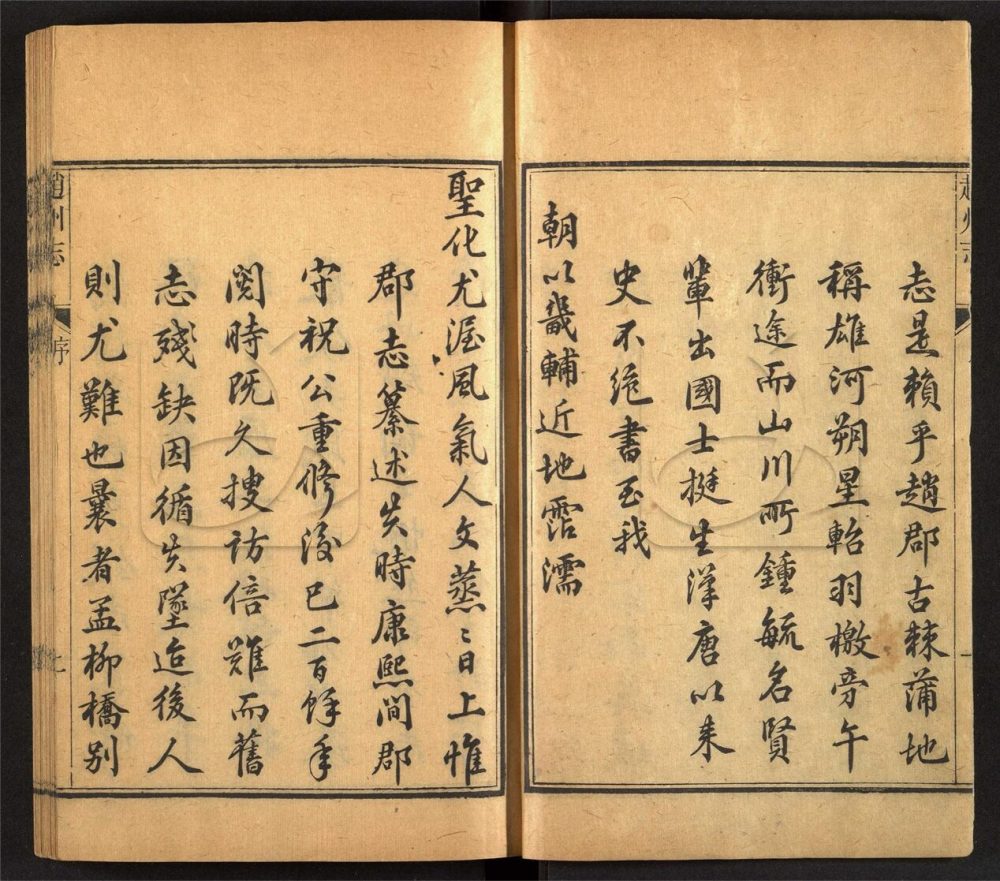 志是賴乎趙郡古棘蒲地
稱雄河朔星軺羽檄旁午
衝途而山川所鍾毓名賢
輩出國士挺生漢唐以來
史不絶書至我
朝以畿輔近地霑濡
聖化尤渥風氣人文蒸〻日上惟
郡志纂述失時康熙间郡
守祝公重修後已二百餘年
閱時既久搜訪倍難而舊
志殘缺因循失墜迨後人
則尤難也曩者孟柳橋别
趙州志
序